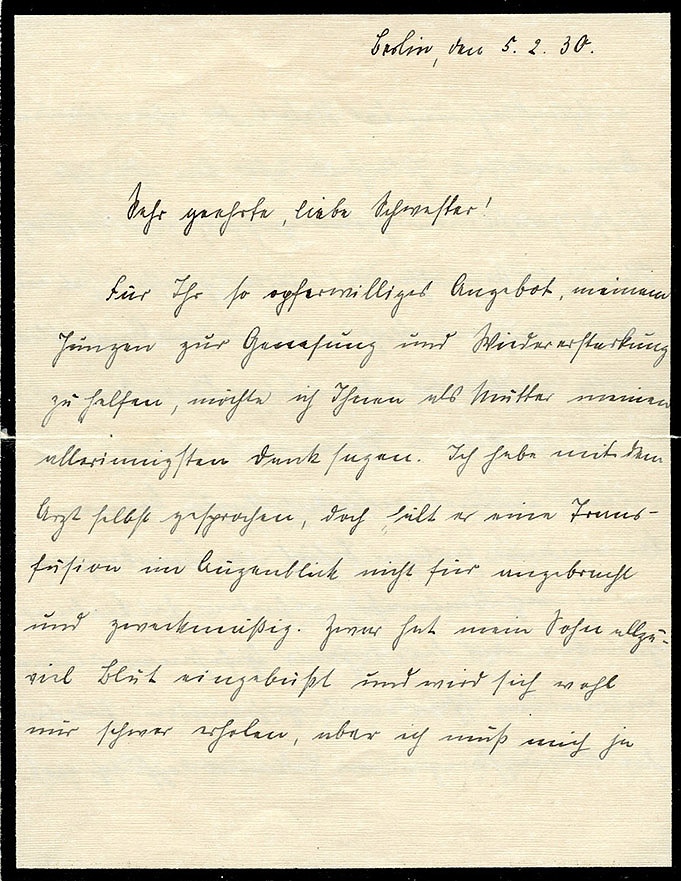 Berlin, den 5. 2. 30.
Sehr geehrte, liebe Schwester!
Für Ihr so opferwilliges Angebot, meinem
Jungen zur Genesung und Wiedererstarkung
zu helfen, möchte ich Ihnen als Mutter meinen
allerinnigsten Dank sagen. Ich habe mit dem
Arzt selbst gesprochen, doch hält er eine Trans-
fusion im Augenblick nicht für angebracht
und zweckmäßig. Zwar hat mein Sohn allzu-
viel Blut eingebüßt und wird sich wohl
nur schwer erholen, aber ich muß mich ja